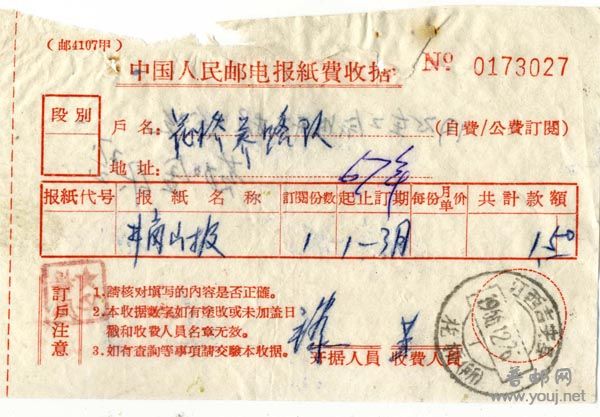 （邮4107甲）
中国人民邮电报紙費收据 № 0173027
段別
戶名：养路队 （自費/公費訂閱）
地址： 67年
报紙代号 报紙名称 訂閱份数 起止訂期 每份月单价 共計款額
井崗山报 1 1—3月 1.50
訂戶注意
1.請核对填写的內容是否正確。
2.本收据数字如有塗改或未加盖日
戳和收費人員名章无效。
3.如有查詢等事項請交驗本收据。
开据人員 收費人員
江西吉安
普邮网
www.youj.net